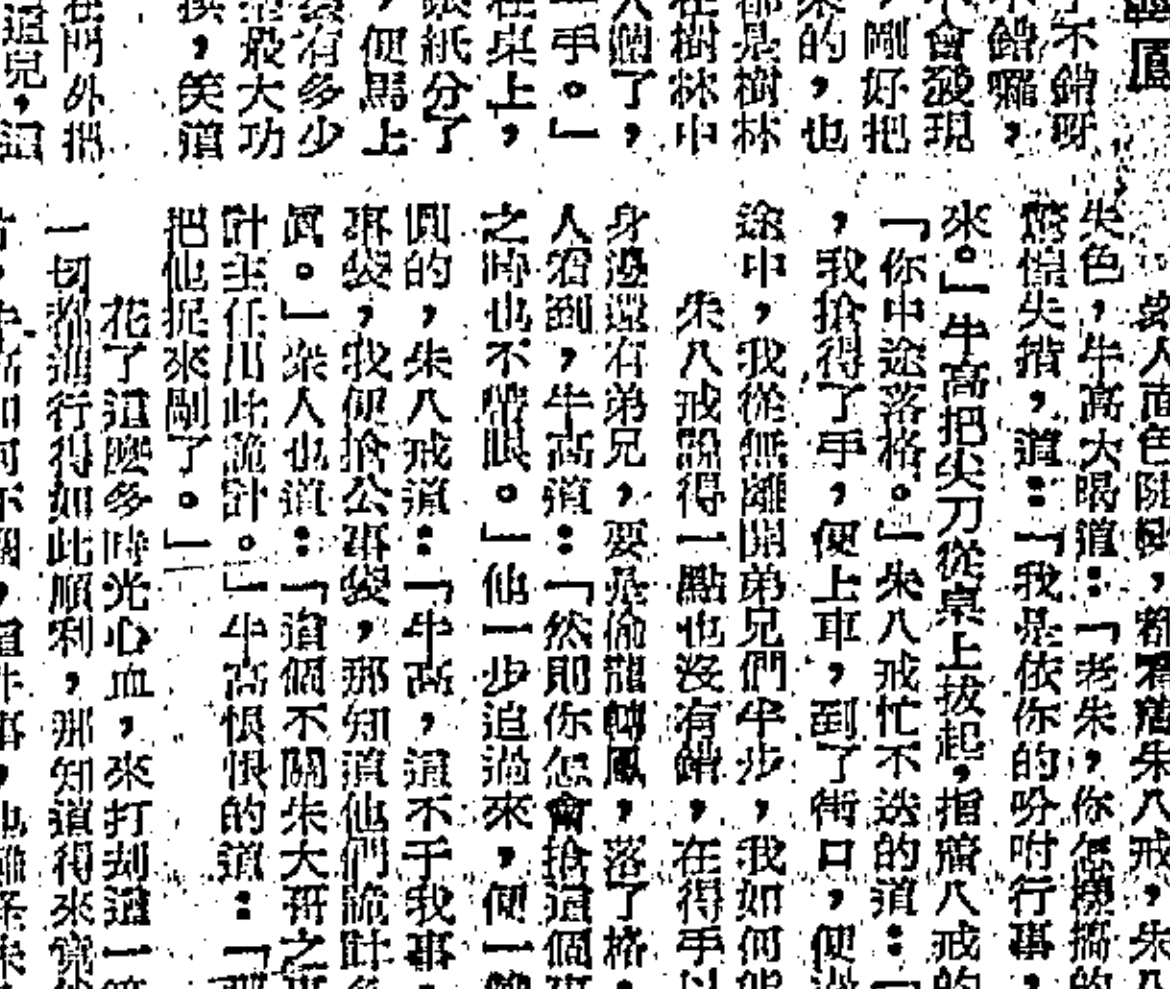 鳳
不錯呀
不錯囉，
會發現
，剛好把
來的，也
都是樹林
在樹林中
個了，
手。」
在桌上，
張紙分了
，便馬上
有多少
般大功
換，笑道
門外把
這兒，這
眾人面色陡變，都看着朱八戒，朱八
失色，牛高大喝道：「老朱，你怎樣搞的
驚惶失措，道：「我是依你的吩咐行事，
來。」牛高把尖刀從桌上拔起，指着八戒的
「你中途落格。」朱八戒忙不迭的道：「
，我搶得了手，便上車，到了街口，便過
途中，我從無離開弟兄們半步，我如何能
朱八戒說得一點也沒有錯，在得手以
身邊還有弟兄，要是偷龍轉鳳，落了格，
人看到，牛高道：「然則你怎會搶這個事
之時也不帶眼。」他一步迫過來，便一雙
圓的，朱八戒道：「牛高，這不干我事，
事袋，我便搶公事袋，那知道他們詭計多
眞。」衆人也道：「這個不關朱大哥之事
計主任用此詭計。」牛高恨恨的道：「那
把他捉來剮了。」
花了這麼多時光心血，來打刦這一筆
一切都進行得如此順利，那知道得來竟然
如何不，這件事，也難